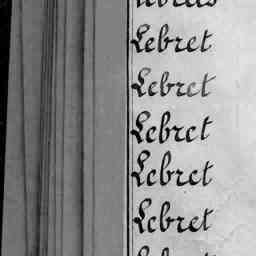 Lebret
Lebret
Lebret
Lebret
Lebret